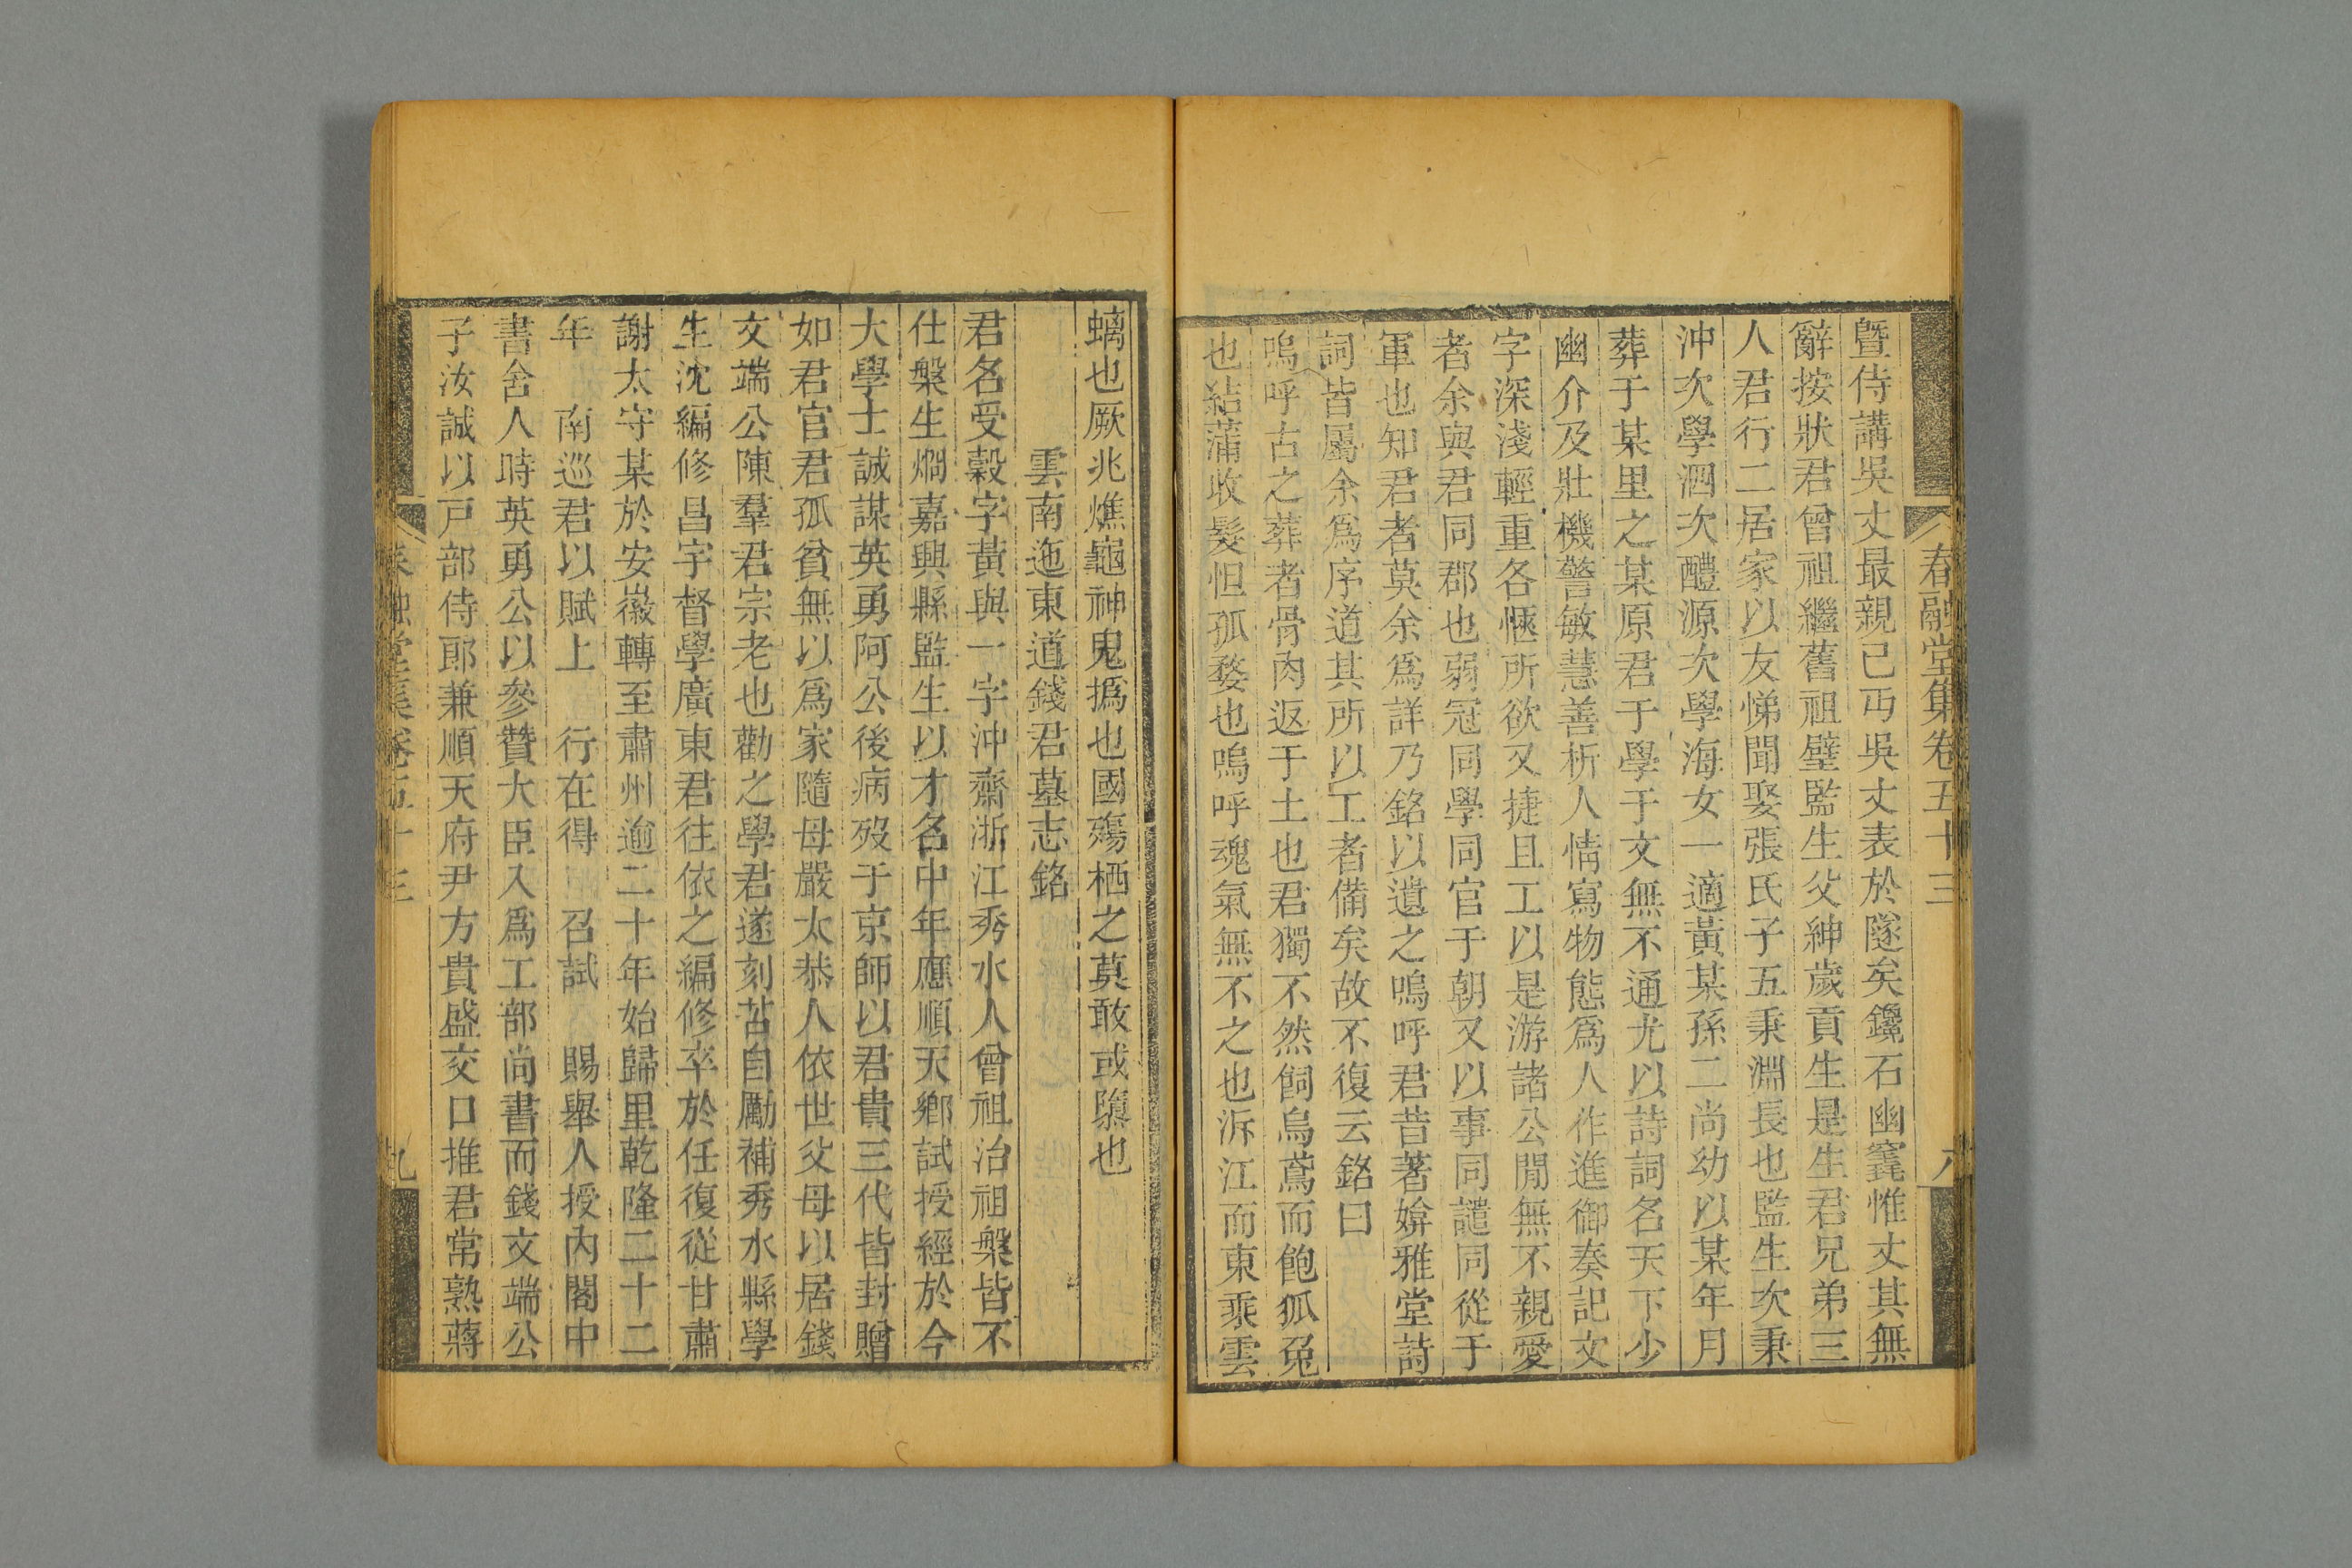 春融堂集卷五十三
八
暨侍講吳丈最親已丏吳丈表於隧矣鑱石幽窀惟丈其無
辭按狀君曾祖繼舊祖壁監生父紳歲貢生是生君兄弟三
人君行二居家以友悌聞娶張氏子五秉淵長也監生次秉
沖次學泗次醴源次學海女一適黃某孫二尚幼以某年月
葬于某里之某原君于學于文無不通尤以詩詞名天下少
幽介及壯機警敏慧善析人情寫物態爲人作進御奏記文
字深淺輕重各愜所欲又捷且工以是游諸公閒無不親愛
者余與君同郡也弱冠同學同官于朝又以事同譴同從于
軍也知君者莫余爲詳乃銘以遺之嗚呼君昔著媕雅堂詩
詞皆屬余爲序道其所以工者備矣故不復云銘曰
嗚呼古之葬者骨肉返于土也君獨不然飼烏鳶而飽狐兔
也結蒲收髮怛孤嫠也嗚呼魂氣無不之也泝江而東乘雲
螭也厥兆燋龜神鬼撝也國殤栖之莫敢或隳也
雲南迤東道錢君墓志銘
君名受穀字黃與一字沖齋浙江秀水人曾祖治祖槃皆不
仕槃生烱嘉興縣監生以才名中年應順天鄉試授經於今
大學士誠謀英勇阿公後病歿于京師以君貴三代皆封贈
如君官君孤貧無以爲家隨母嚴太恭人依世父母以居錢
文端公陳羣君宗老也勸之學君遂刻苦自勵補秀水縣學
生沈編修昌宇督學廣東君往依之編修卒於任復從甘肅
謝太守某於安徽轉至肅州逾二十年始歸里乾隆二十二
年　南巡君以賦上　行在得　召試　賜舉人授内閣中
書舍人時英勇公以參贊大臣入爲工部尚書而錢文端公
子汝誠以戸部侍郎兼順天府尹方貴盛交口推君常熟蔣
春融堂集卷五十三
九